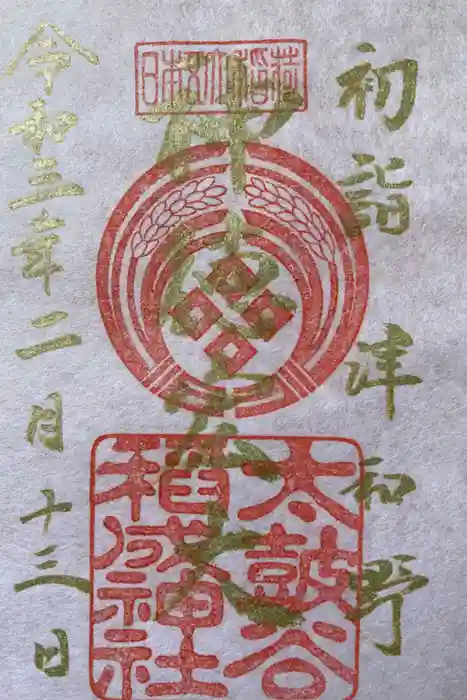 初詣 津和野
日本五大稲荷
神徳宏大
太鼓谷
稲成神社
令和三年二月十三日